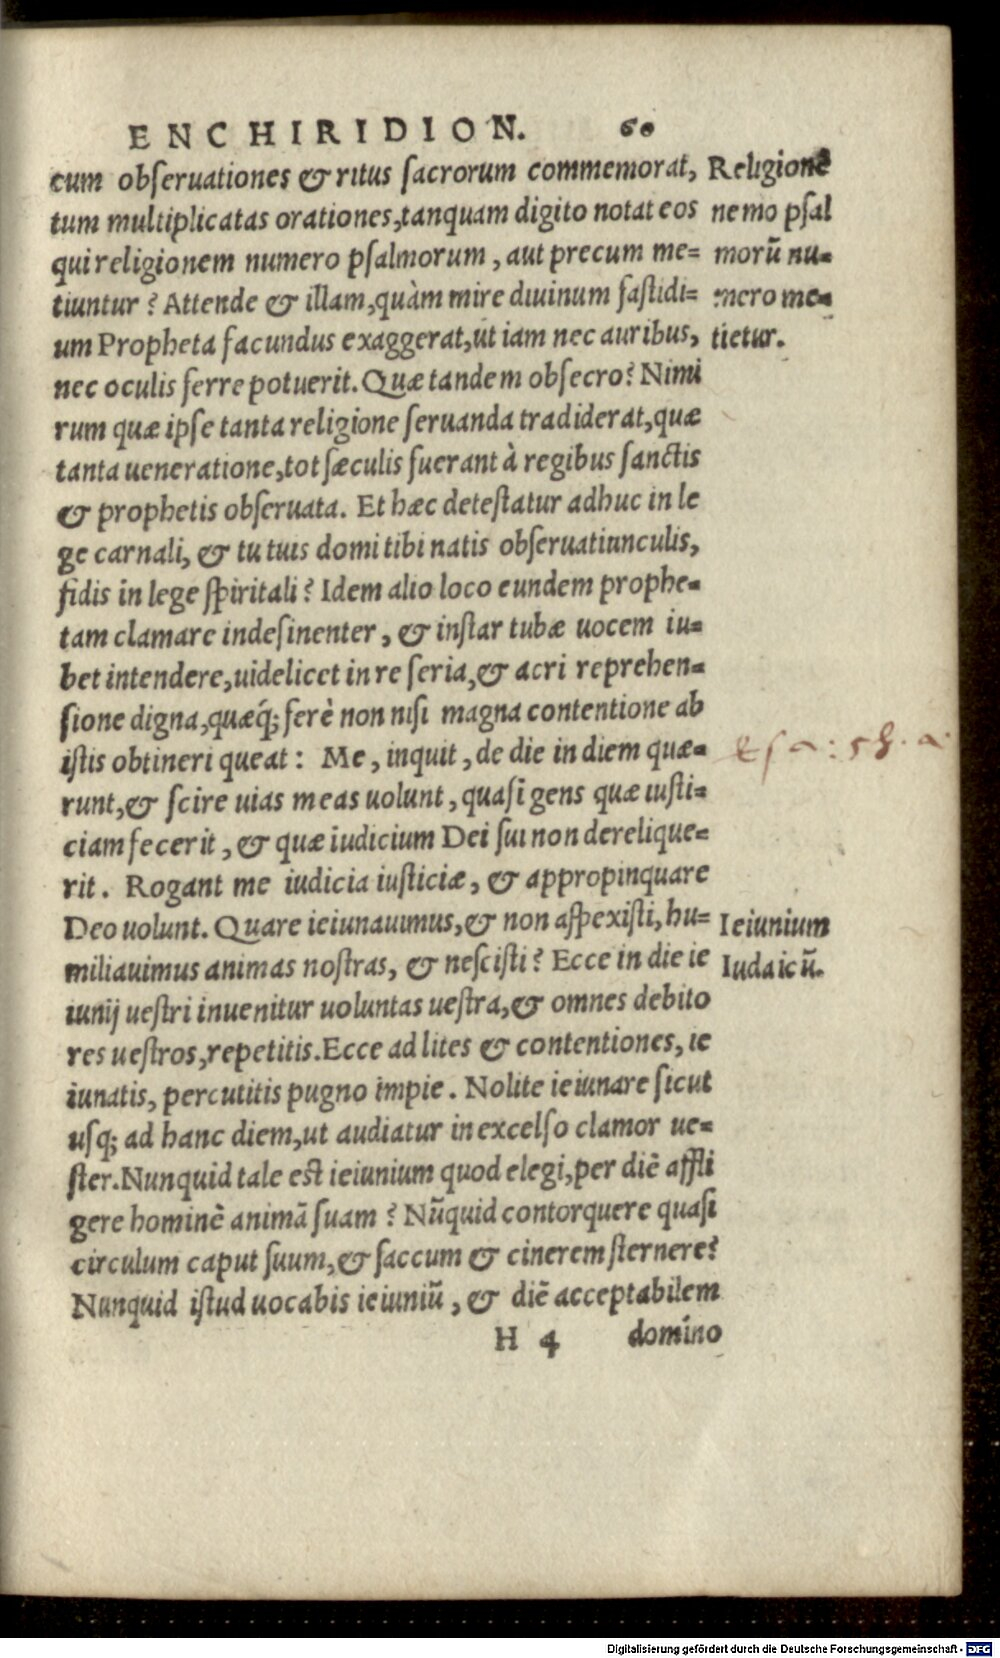 ENCHIRIDION. 60
cum obseruationes & ritus sacrorum commemorat,
tum multiplicatas orationes, tanquam digito notat eos
qui religionem numero psalmorum, aut precum me=
tiuntur? Attende & illam, quàm mire diuinum fastidi=
um Propheta facundus exaggerat, ut iam nec auribus,
nec oculis ferre potuerit. Quæ tandem obsecro? Nimi
rum quæ ipse tanta religione seruanda tradiderat, quæ
tanta ueneratione, tot sæculis fuerant à regibus sanctis
& prophetis obseruata. Et hæc detestatur adhuc in le
ge carnali, & tu tuis domi tibi natis obseruatiunculis,
fidis in lege spiritali? Idem alio loco eundem prophe=
tam clamare indesinenter, & instar tubæ uocem iu=
bet intendere, uidelicet in re seria, & acri reprehen=
sione digna, quæq; ferè non nisi magna contentione ab
istis obtineri queat: Me, inquit, de die in diem quæ=
runt, & scire uias meas uolunt, quasi gens quæ iusti=
ciam fecerit, & quæ iudicium Dei sui non derelique=
rit. Rogant me iudicia iusticiæ, & appropinquare
Deo uolunt. Quare ieiunauimus, & non aspexisti, hu=
miliauimus animas nostras, & nescisti? Ecce in die ie
iunij uestri inuenitur uoluntas uestra, & omnes debito
res uestros, repetitis. Ecce ad lites & contentiones, ie
iunatis, percutitis pugno impie. Nolite ieiunare sicut
usq; ad hanc diem, ut audiatur in excelso clamor ue=
ster. Nunquid tale est ieiunium quod elegi, per diē affli
gere hominē animā suam? Nūquid contorquere quasi
circulum caput suum, & saccum & cinerem sternere?
Nunquid istud uocabis ieiuniū, & diē acceptabilem
H 4 domino
Religionē
nemo psal
morū nu=
mero me=
tietur.
Esa: 58. a.
Ieiunium
Iudaicū.
Digitalisierung gefördert durch die Deutsche Forschungsgemeinschaft - DFG